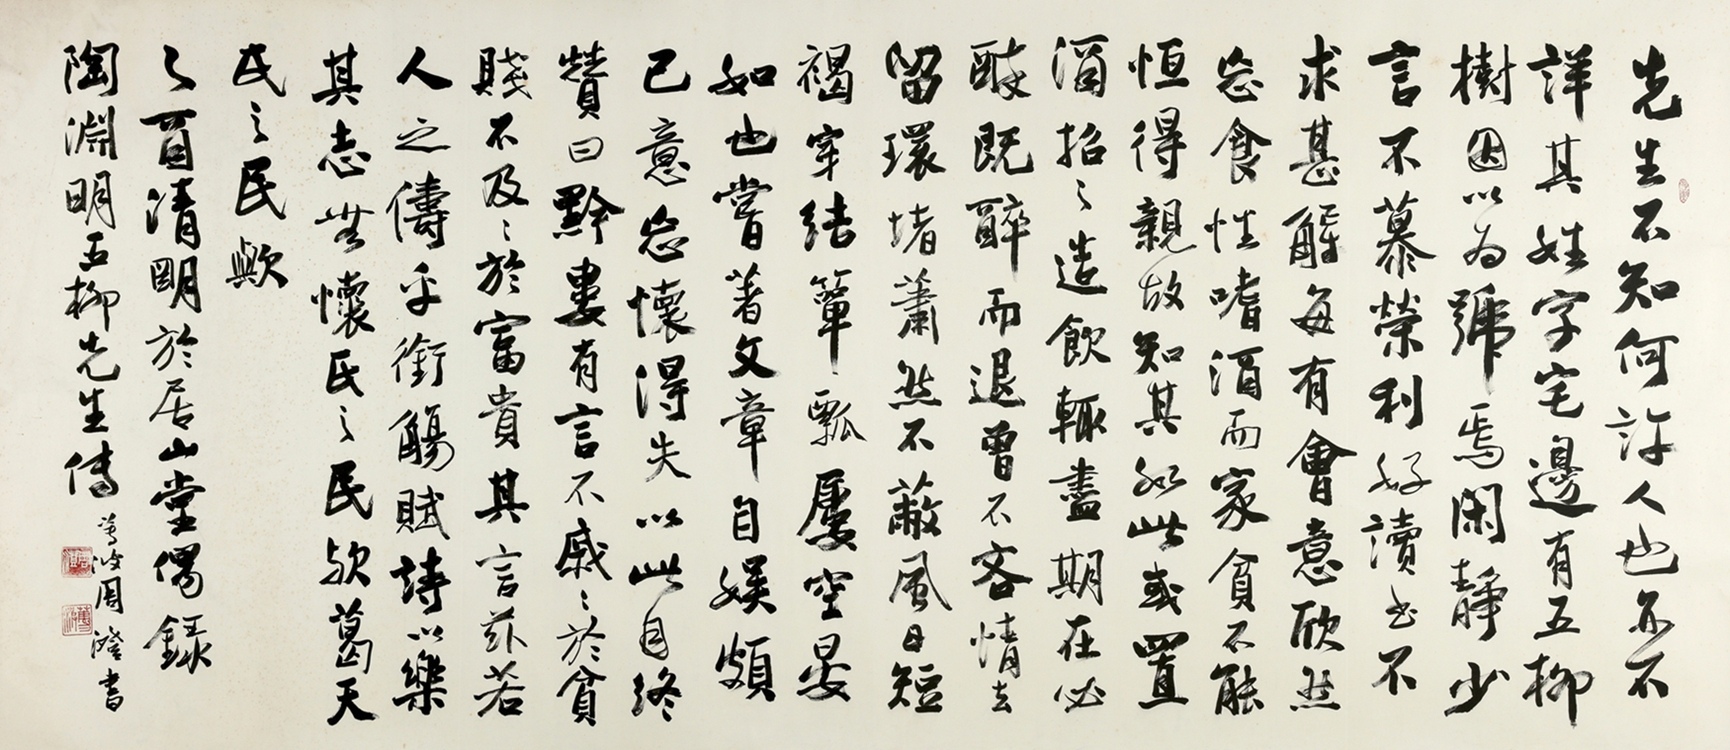 先生不知何許人也亦不
詳其姓字宅邊有五柳
樹因以為號焉閑靜少
言不慕榮利好讀書不
求甚解每有會意欣然
忘食性嗜酒而家貧不能
恒得親故知其如此或置
酒招々造飲輒盡期在必
醉既醉而退曾不吝情去
留環堵蕭然不蔽風日短
褐穿結簞瓢屢空晏
如也嘗著文章自娛頗
已意忘懷得失以此自終
贊曰黔婁有言不戚々於貧
賤不及々於富貴其言茲若
人之儔乎銜觴賦詩以樂
其志無懷氏之民歟葛天
氏之民歟
乙酉清明於居山堂偶錄
陶淵明五柳先生傳 蓴波周澄書